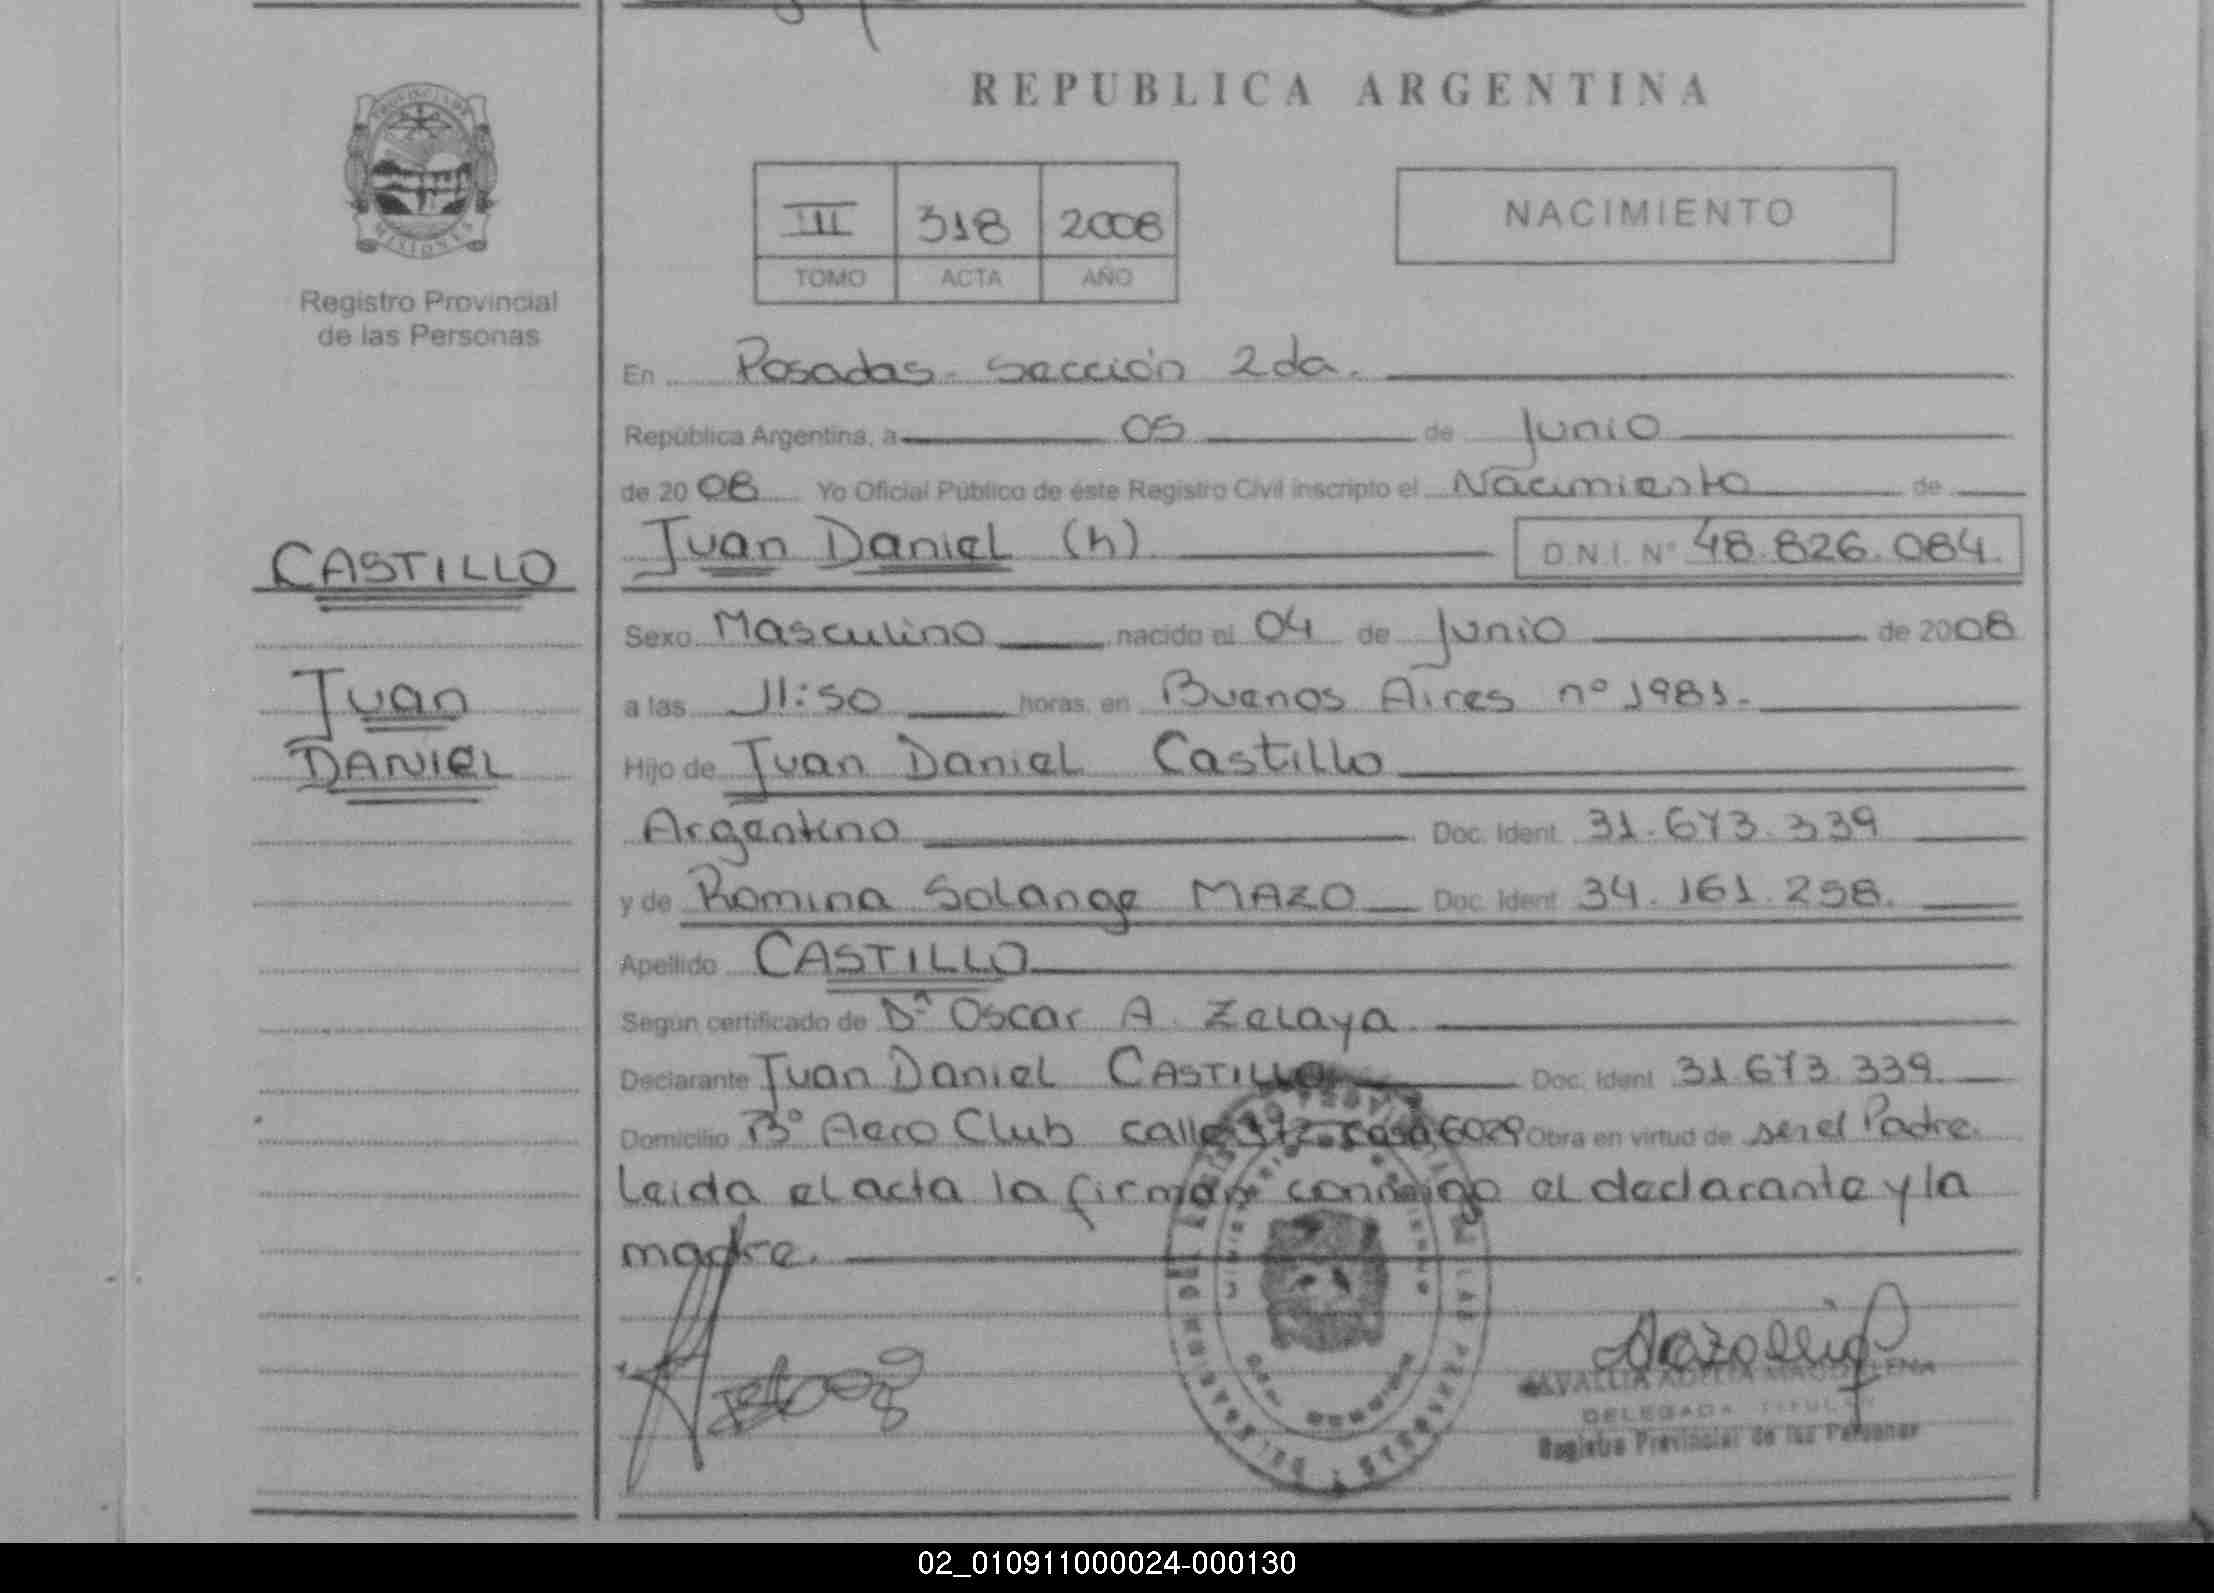 REPUBLICA ARGENTINA
PROVINCIA DE
MISIONES
Registro Provincial
de las Personas
III 318 2008
TOMO ACTA AÑO
NACIMIENTO
En Posadas - Sección 2da.
República Argentina, a 05 de Junio
de 2008 Yo Oficial Público de éste Registro Civil inscripto el Nacimiento de
CASTILLO
Juan
DANIEL
Juan Daniel (h) D.N.I. Nº 48.826.084.
Sexo Masculino nacido el 04 de Junio de 2008
a las 11:50 horas, en Buenos Aires nº 1981.-
Hijo de Juan Daniel Castillo
Argentino Doc. Ident. 31.673.339
y de Romina Solange MAZO Doc. Ident. 34.161.258.
Apellido CASTILLO
Según certificado de Dr Oscar A. Zelaya
Declarante Juan Daniel CASTILLO Doc. Ident. 31.673.339.
Domicilio Bº Aero Club calle 372 casa 6029 Obra en virtud de ser el Padre.
Leida el acta la firman conmigo el declarante y la
madre.
DELEGADA TITULAR
Registro Provincial de las Personas
02_010911000024-000130